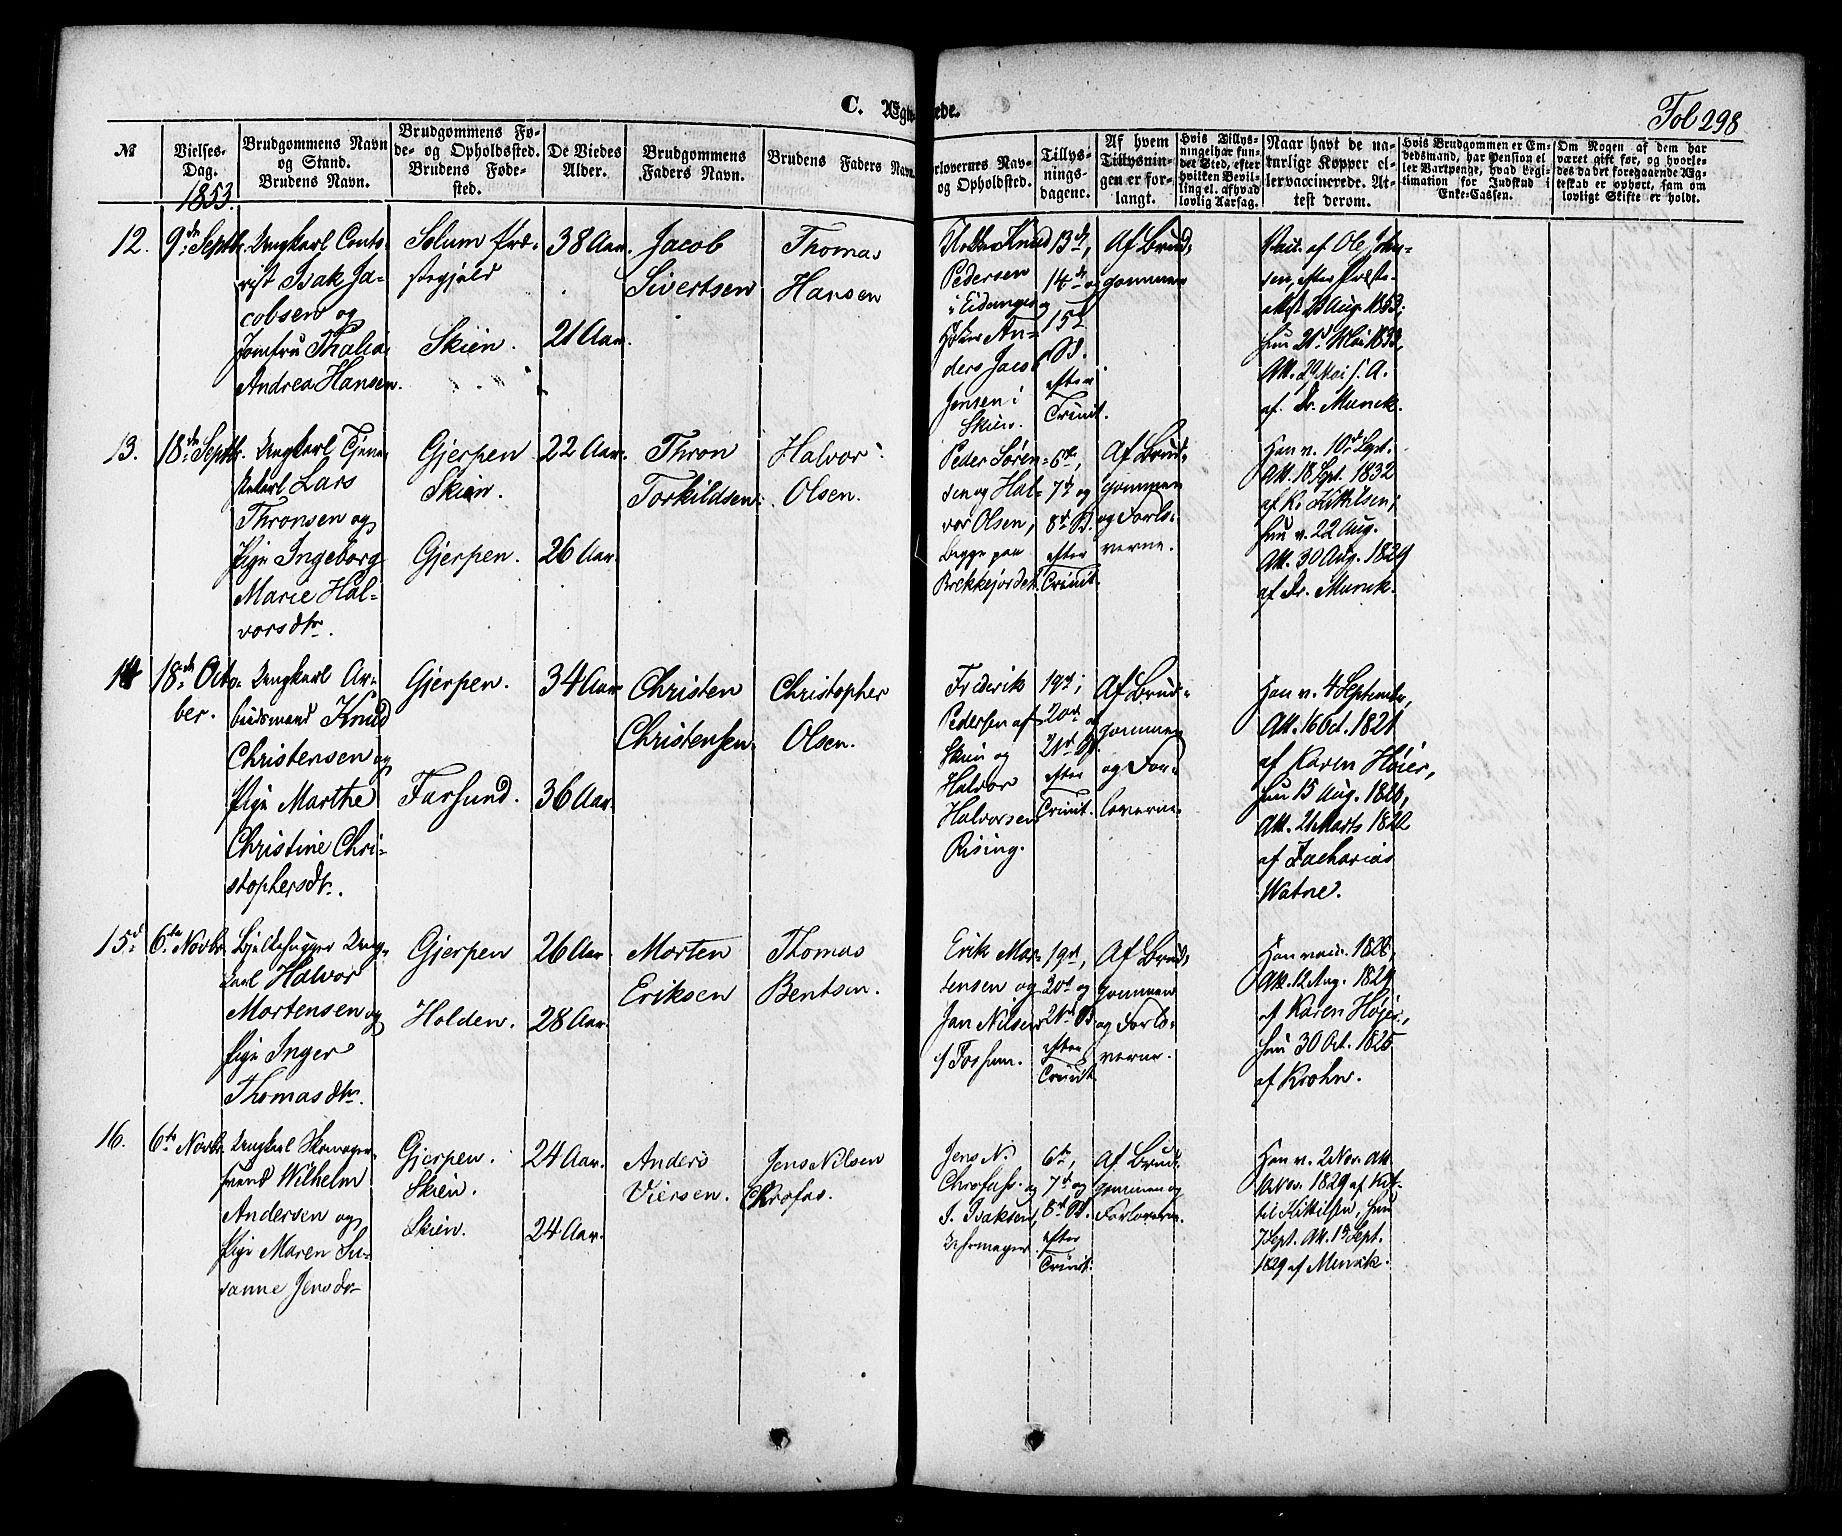 C. Ægteviede.
Fol 298
№
Vielses-
Dag.
1853.
Brudgommens Navn
og Stand.
Brudens Navn.
Brudgommens Fø-
de- og Opholdssted.
Brudens Føde-
sted.
De Viedes
Alder.
Brudgommens
Faders Navn.
Brudens Faders Navn.
orlovernes Nav-
og Opholdsted.
Tillys-
nings-
dagene.
Af hvem
Tillysnin-
gen er for-
langt.
Hvis Tillys-
ning el har fun-
det Sted, efter
hvilken Bevil-
ling el. afhvad
lovlig Aarsag.
Naar havt de na-
turlige Kopper el-
ler vaccinerede. At-
test derom.
Hvis Brudgommen er Em-
bedsmand, har Pension el
ler Vartpenge, hvad Legi-
timation for Indskud i
Enke-Cassen.
Om Nogen af dem har
været gift før, og hvorle-
des da det foregaaende Æg-
teskab er ophørt, sam om
lovligt Skifte er holdt.
12.
9de Septbr.
Ungkarl Conto-
rist Isak Ja-
cobsen og
Jomfru Thalia
Andrea Hansen.
Solum Præ-
stegjeld
Skien.
38 Aar.
21 Aar.
Jacob
Sivertsen
Thomas
Hansen
Knud
Pedersen
i Eidanger og
An-
ders Jacob
Jensen i
Skien.
13de,
14de og
15de
S.
efter
Trinit.
Af Brud-
gommen
Vaic. af Ole Joh-
sen, efter Præste-
attest 23 Aug. 1853;
hun 21de Mai 1833,
Att. 29 Mai s. A.
af Dr. Munck.
13.
18de Septbr.
Ungkarl Tjene-
stekarl Lars
Thronsen og
Pige Ingeborg
Marie Hal-
vorsdtr.
Gjerpen
Skien.
Gjerpen.
22 Aar.
26 Aar.
Thron
Torkildsen.
Halvor
Olsen.
Peder Søren-
sen og Hal-
vor Olsen,
begge paa
Brekkejordet.
6te,
7de og
8de S.
efter
Trinit.
Af Brud-
gommen
og Forlo-
verne.
Han v. 10de Sept.
Att. 18 Sept. 1832
af K. Kittilsen;
hun v. 22 Aug.
Att. 30 Aug. 1829
af Dr. Munck.
14
18de Octo-
ber.
Ungkarl Ar-
beidsmand Knud
Christensen og
Pige Marthe
Christine Chri-
stophersdtr.
Gjerpen.
Farsund.
34 Aar
36 Aar.
Christen
Christensen.
Christopher
Olsen.
Frederik
Pedersen af
Skien og
Halvor
Halvorsen
Rising.
19de,
20de og
21de S.
efter
Trinit.
Af Brud-
gommen
og For-
loverne.
Han v. 4 September,
Att. 16 Oct. 1821
af Karen Høier,
hun 13 Aug. 1820,
Att. 21 Marts 1822
af Zacharias
Watne.
15d.
6te Novbr.
Bjelkehugger Ung-
karl Halvor
Mortensen og
Pige Inger
Thomasdtr.
Gjerpen
Holden.
26 Aar
28 Aar.
Morten
Eriksen
Thomas
Bentsen.
Erik Mor-
tensen og
Jan Nilsen
s/ Fossum.
19de,
20de og
21de S.
efter
Trinit
Af Brud-
gommen
og Forlo-
verne.
Han vaic. 1828,
Att. 12 Aug. 1829
af Karen Højer,
hun 30 Oct. 1825
af Krohn.
16.
6te Novbr.
Ungkarl Skomager-
svend Wilhelm
Andersen og
Pige Maren Su-
sanne Jensdtr
Gjerpen.
Skien.
Skien.
24 Aar.
24 Aar.
Anders
Viersen.
Jens Nilsen
Chrofas.
Jens N.
Chrofass. og
J. Isaksen,
Uhrmager.
6te,
7de og
8de S.
efter
Trinit.
Af Brud-
gommen og
Forloverne.
Han v. 2 Nov. Att.
Nov. 1829 af Kit-
til Kittilsen, hun
7 Sept. Att. 15 Sept.
1829 af Munck.